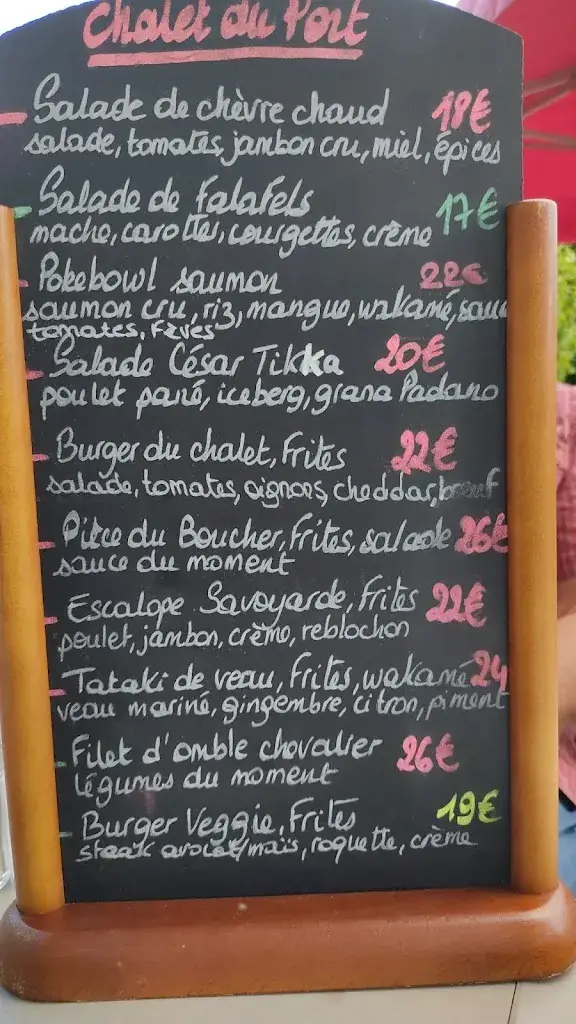 Chalet du Port
Salade de chèvre chaud 18€
salade, tomates, jambon cru, miel, épices
Salade de Falafels 17€
mache, carottes, courgettes, crème
Pokebowl saumon 22€
saumon cru, riz, mangue, wakamé, sauc
tomates, fèves
Salade César Tikka 20€
poulet pané, iceberg, grana Padano
Burger du chalet, Frites 22€
salade, tomates, oignons, cheddar, boeuf
Pièce du Boucher, frites, salade 26€
sauce du moment
Escalope Savoyarde, Frites 22€
poulet, jambon, crème, reblochon
Tataki de veau, frites, wakamé 24
veau mariné, gingembre, citron, piment
Filet d'omble chevalier 26€
légumes du moment
Burger Veggie, Frites 19€
steak avocat/maïs, roquette, crème